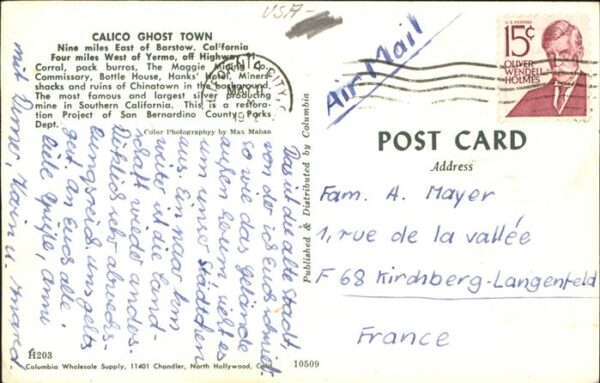 USA-
CALICO GHOST TOWN
Nine miles East of Barstow, California
Four miles West of Yermo, off Highway
Corral, pack burros, The Maggie Mining
Commissary, Bottle House, Hanks' Hotel, Miners'
shacks and ruins of Chinatown in the background.
The most famous and largest silver producing
mine in Southern California. This is a restora-
tion Project of San Bernardino County Parks
Dept.
Color Photography by Max Mahan
Das ist die alte Stadt,
von der ich Euch schrieb.
so wie das gelände
außen herum sieht es
um unser Städtchen
aus. Ein paar km
weiter ist die Land-
schaft wieder anders.
Wirklich sehr abwechs-
lungsreich. Uns gehts
gut an Euch alle,
liebe Grüße, Anni
mit Karin u.
H203
Columbia Wholesale Supply, 11401 Chandler, North Hollywood,
10509
Published & Distributed by Columbia
Air Mail
U.S. POSTAGE
15¢
OLIVER
WENDELL
HOLMES
CITY,
POST CARD
Address
Fam. A. Mayer
1, rue de la vallée
F 68 Kirchberg-Langenfeld
France